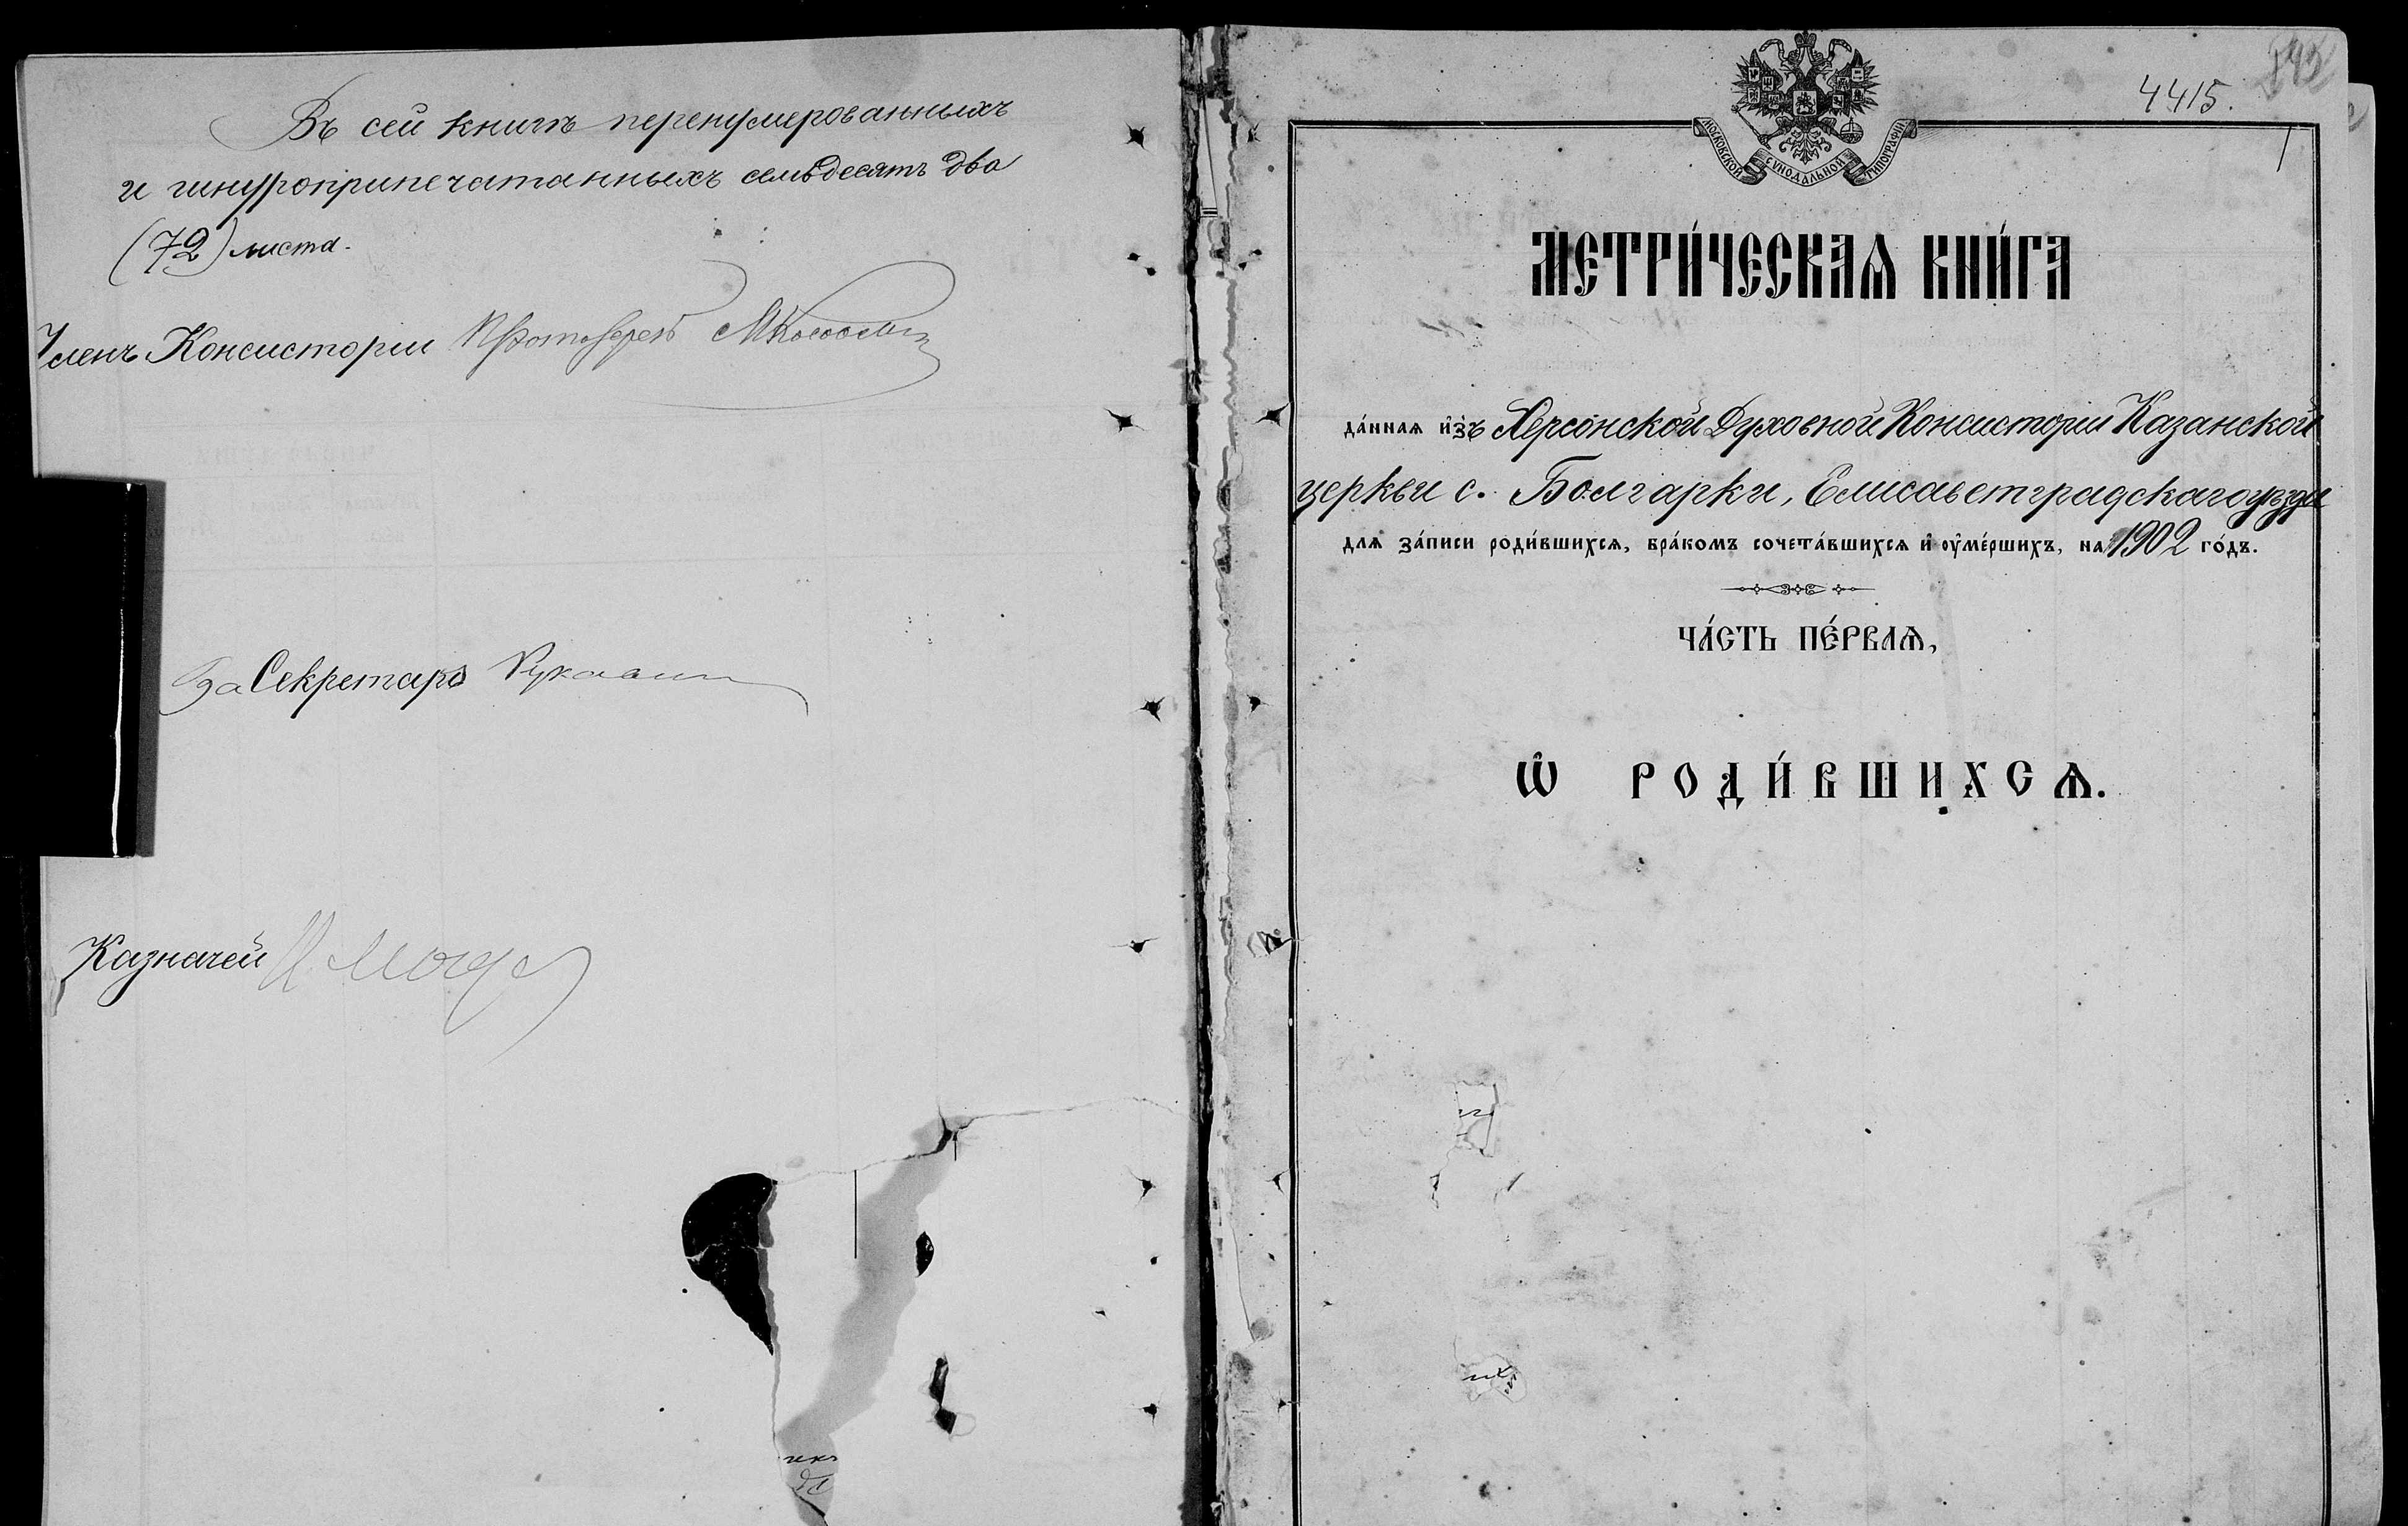 Въ сей книгѣ перенумерованныхъ
и шнуроприпечатанныхъ семьдесятъ два
(72) листа.
Членъ Консисторіи Протоіерей
За Секретаря
Казначей
4415.
1
МОСКОВСКОЙ СѴНОДАЛЬНОЙ ТИПОГРАФІИ
МЕТРИ́ЧЕСКАѦ КНИ́ГА
да́ннаѧ и҆зъ Херсонской Духовной Консисторіи Казанской
церкви с. Болгарки, Елисаветградскаго уѣзда
длѧ за́писи роди́вшихсѧ, бра́комъ сочета́вшихсѧ и҆ ѹ҆ме́ршихъ, на 1902 го́дъ.
ЧА́СТЬ ПЕ́РВАѦ,
Ѡ҆ РОДИ́ВШИХСѦ.